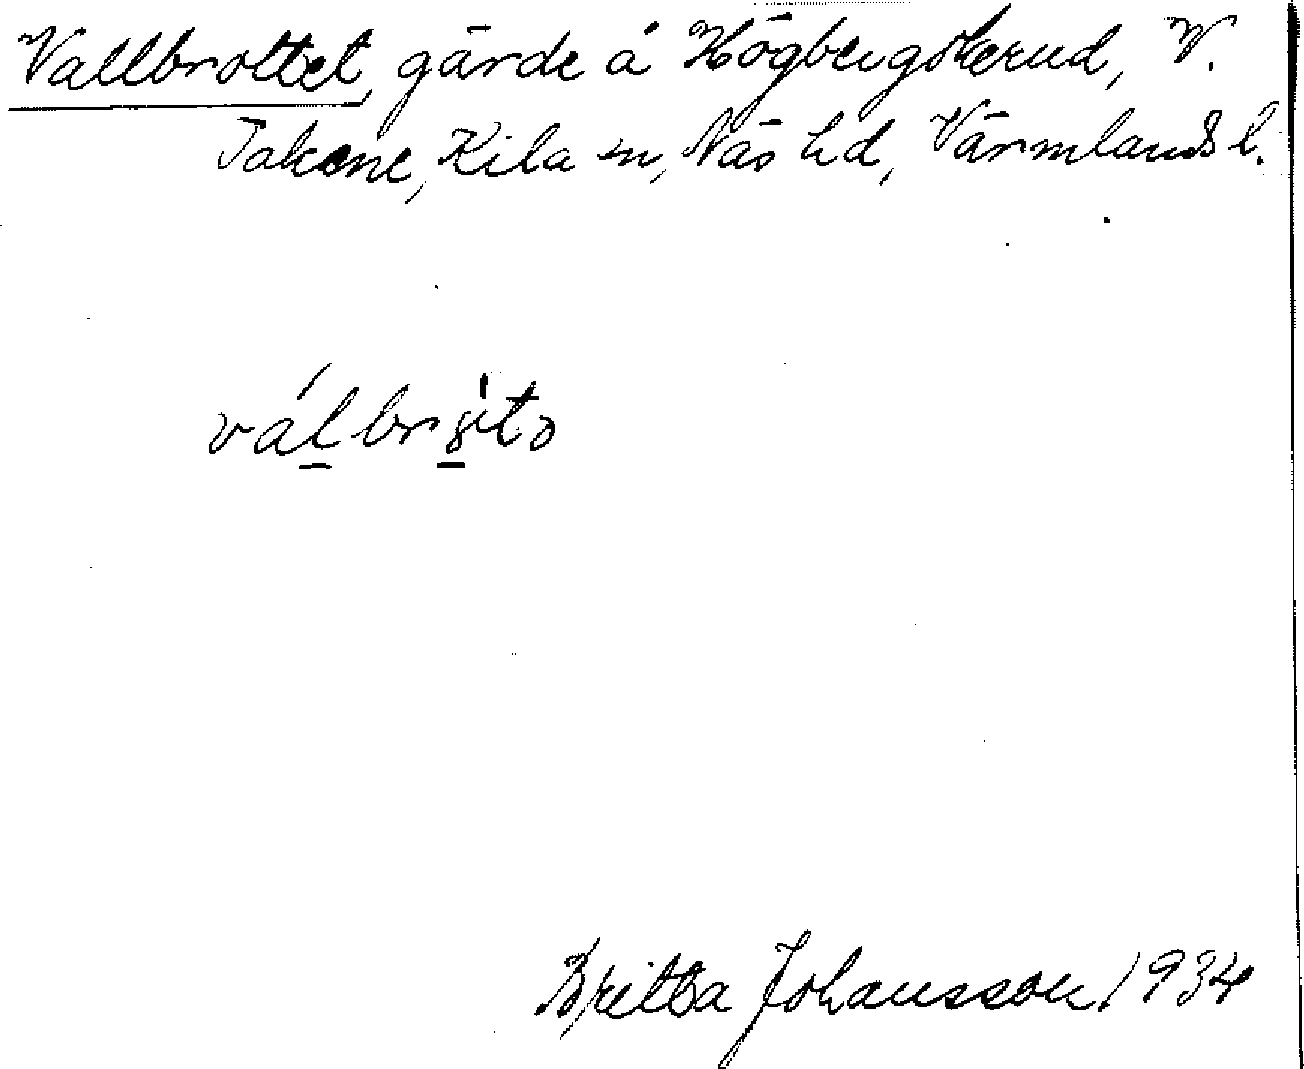 Vallbrottet, gärde å Högbergskerud, V.
Takene, Kila sn, Näs hd, Värmlands l.
Britta Johansson 1934